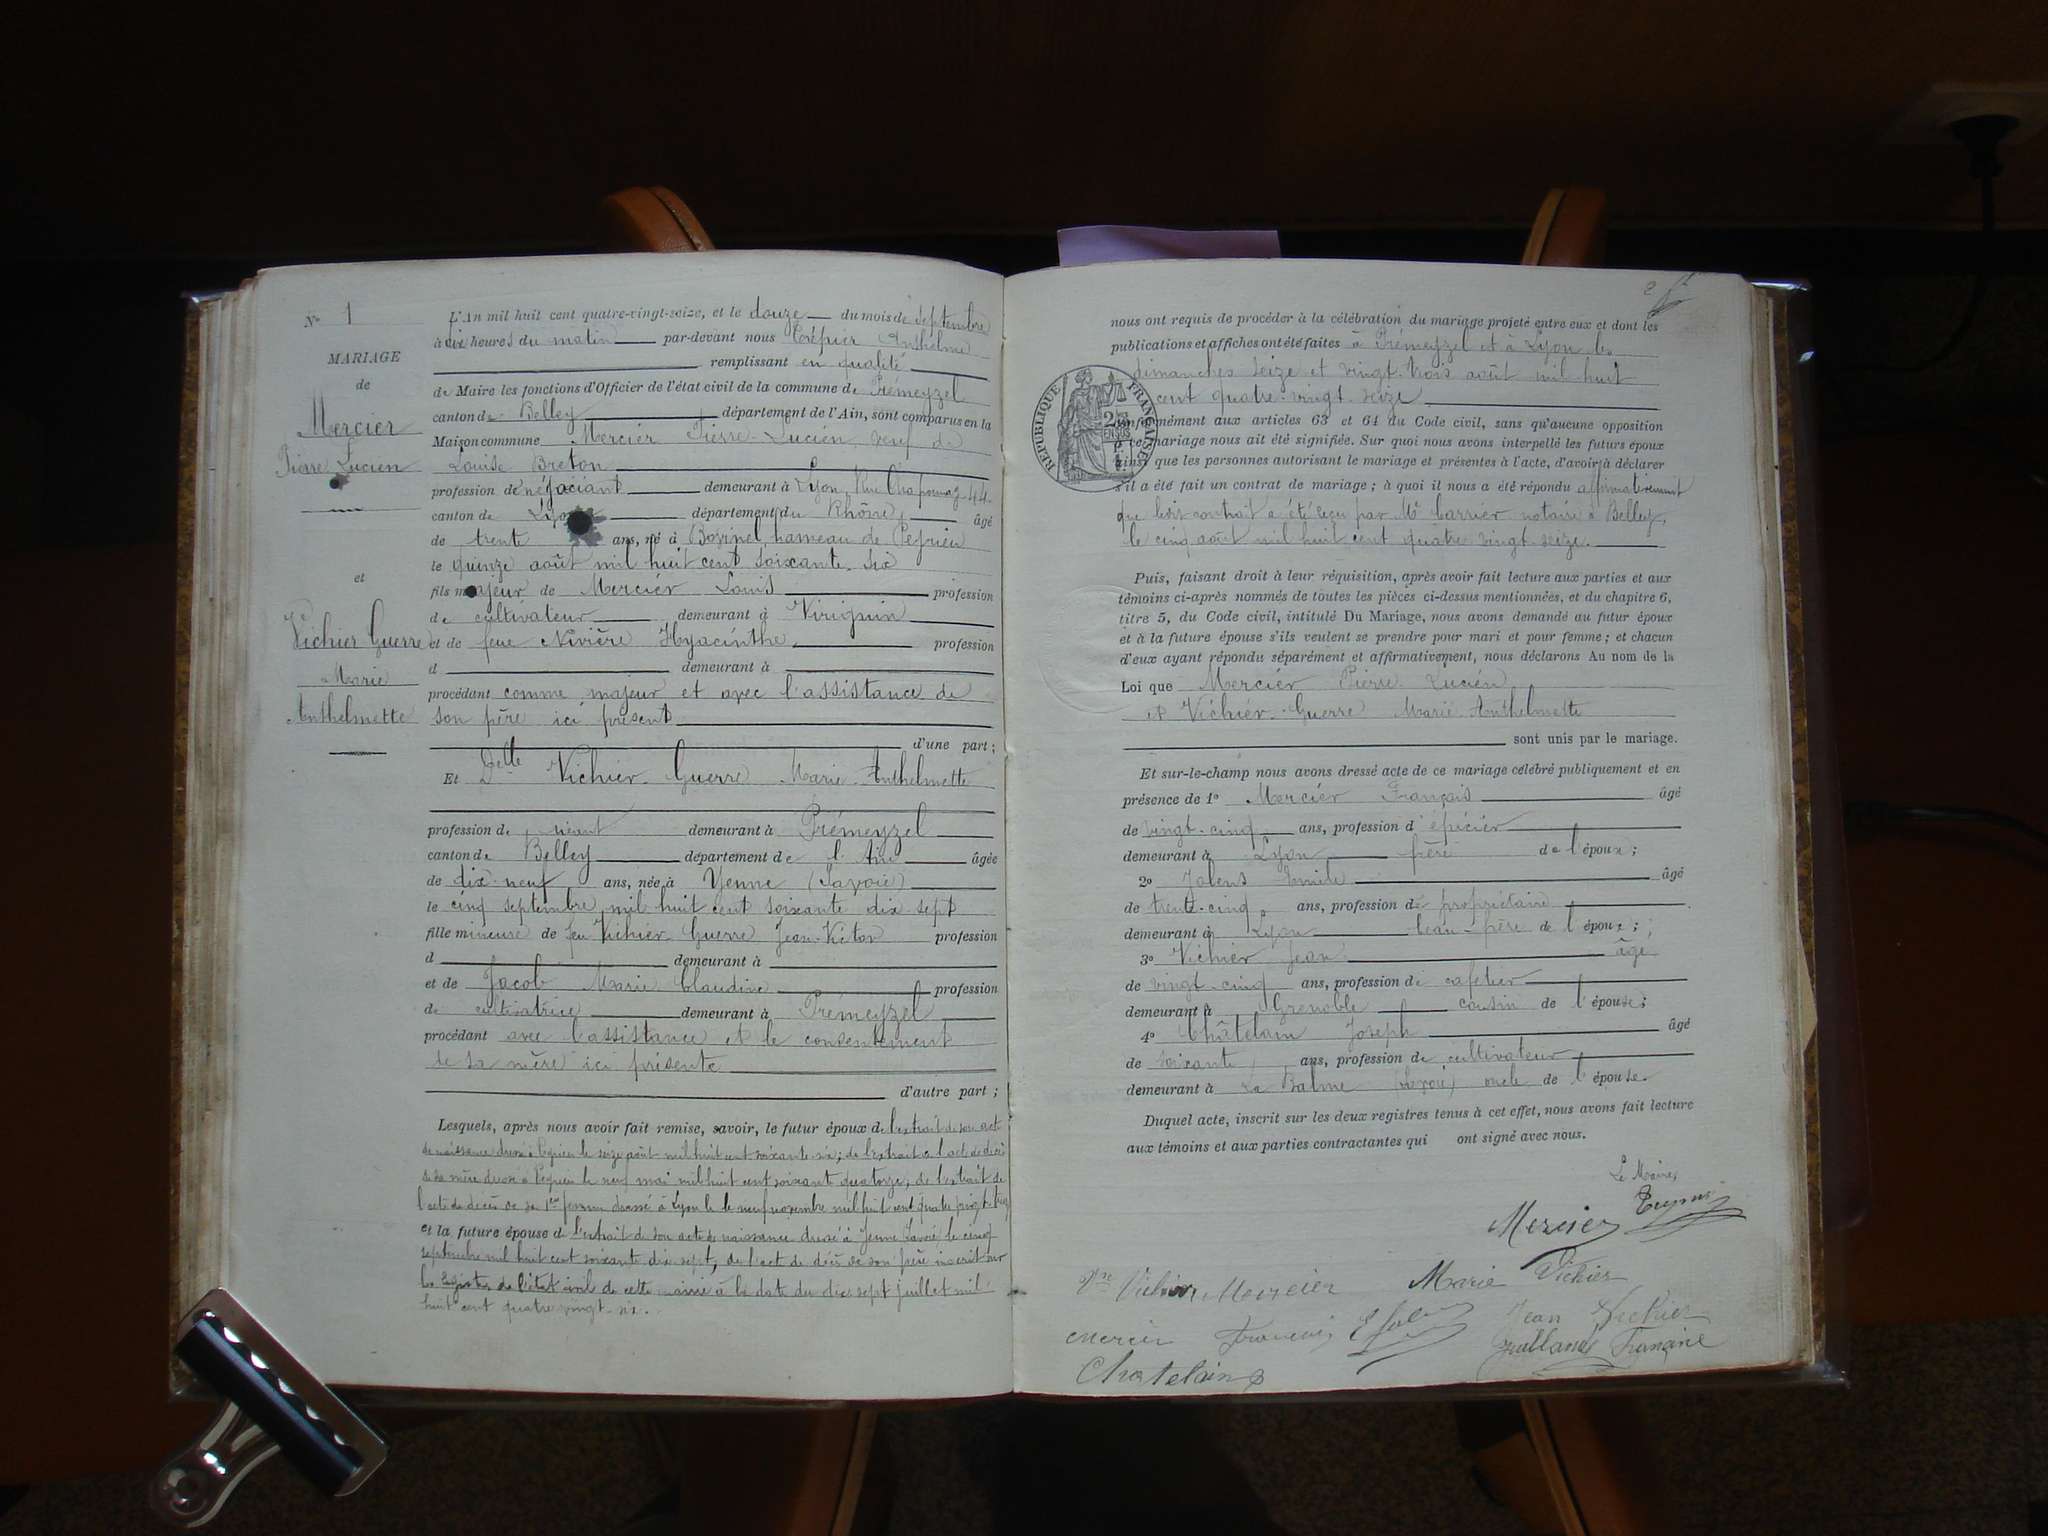 No 1
MARIAGE
de
Mercier
Pierre Lucien
et
Vichier Guerre
Marie
Anthelmette
L'An mil huit cent quatre-vingt-seize, et le douze du mois de Septembre
à dix heures du matin par-devant nous Trépier Anthelme
remplissant en qualité
de Maire les fonctions d'Officier de l'état civil de la commune de Prémeyzel
canton de Belley département de l'Ain, sont comparus en la
Maison commune Mercier Pierre-Lucien, veuf de
Louise Breton
profession de négociant demeurant à Lyon, Rue Chaponnay 44
canton de Lyon département du Rhône, âgé
de trente ans, né à Bovinel, hameau de Peyrieu
le quinze août mil huit cent soixante-six
fils majeur de Mercier Louis profession
de cultivateur demeurant à Virignin
et de feue Nivière Hyacinthe profession
d demeurant à
procédant comme majeur et avec l'assistance de
son père ici présent
d'une part;
Et Delle Vichier-Guerre Marie-Anthelmette
profession de néant demeurant à Prémeyzel
canton de Belley département de l'Ain âgée
de dix-neuf ans, née à Yenne (Savoie)
le cinq septembre mil huit cent soixante dix sept
fille mineure de feu Vichier Guerre Jean-Victor profession
d demeurant à
et de Jacob Marie Claudine profession
de cultivatrice demeurant à Prémeyzel
procédant avec l'assistance et le consentement
de sa mère ici présente
d'autre part;
Lesquels, après nous avoir fait remise, savoir, le futur époux de l'extrait de son acte
de naissance dressé à Peyrieu le seize août mil huit cent soixante-six; de l'extrait de l'acte de décès
de sa mère dressé à Peyrieu le neuf mai mil huit cent soixante quatorze, de l'extrait de
l'acte de décès de sa 1ère femme dressé à Lyon le neuf novembre mil huit cent quatre vingt
et la future épouse de l'extrait de son acte de naissance dressé à Yenne (Savoie) le cinq
septembre mil huit cent soixante dix sept, de l'acte de décès de son père inscrit sur
les registres de l'état civil de cette mairie à la date du dix sept juillet mil
huit cent quatre vingt
2
nous ont requis de procéder à la célébration du mariage projeté entre eux et dont les
publications et affiches ont été faites à Prémeyzel et à Lyon les
dimanches seize et vingt-trois août mil huit
cent quatre-vingt-seize
RÉPUBLIQUE FRANÇAISE
conformément aux articles 63 et 64 du Code civil, sans qu'aucune opposition
à ce mariage nous ait été signifiée. Sur quoi nous avons interpellé les futurs époux
ainsi que les personnes autorisant le mariage et présentes à l'acte, d'avoir à déclarer
s'il a été fait un contrat de mariage; à quoi il nous a été répondu affirmativement
que ledit contrat a été reçu par Me Carrier notaire à Belley,
le cinq août mil huit cent quatre vingt-seize.
Puis, faisant droit à leur réquisition, après avoir fait lecture aux parties et aux
témoins ci-après nommés de toutes les pièces ci-dessus mentionnées, et du chapitre 6,
titre 5, du Code civil, intitulé Du Mariage, nous avons demandé au futur époux
et à la future épouse s'ils veulent se prendre pour mari et pour femme; et chacun
d'eux ayant répondu séparément et affirmativement, nous déclarons Au nom de la
Loi que Mercier Pierre-Lucien
et Vichier-Guerre Marie-Anthelmette
sont unis par le mariage.
Et sur-le-champ nous avons dressé acte de ce mariage célébré publiquement et en
présence de 1o Mercier François âgé
de vingt-cinq ans, profession d'épicier
demeurant à Lyon frère de l'époux;
2o Jolens Emile âgé
de trente-cinq ans, profession de propriétaire
demeurant à Lyon beau-frère de l'époux;
3o Vichier Jean âgé
de vingt-cinq ans, profession de cafetier
demeurant à Grenoble cousin de l'épouse;
4o Châtelain Joseph âgé
de soixante ans, profession de cultivateur
demeurant à La Balme (Savoie) oncle de l'épouse.
Duquel acte, inscrit sur les deux registres tenus à cet effet, nous avons fait lecture
aux témoins et aux parties contractantes qui ont signé avec nous.
Le Maire,
Mercier
Mercier Marie Vichier
Mercier François Jean Vichier
Chatelain